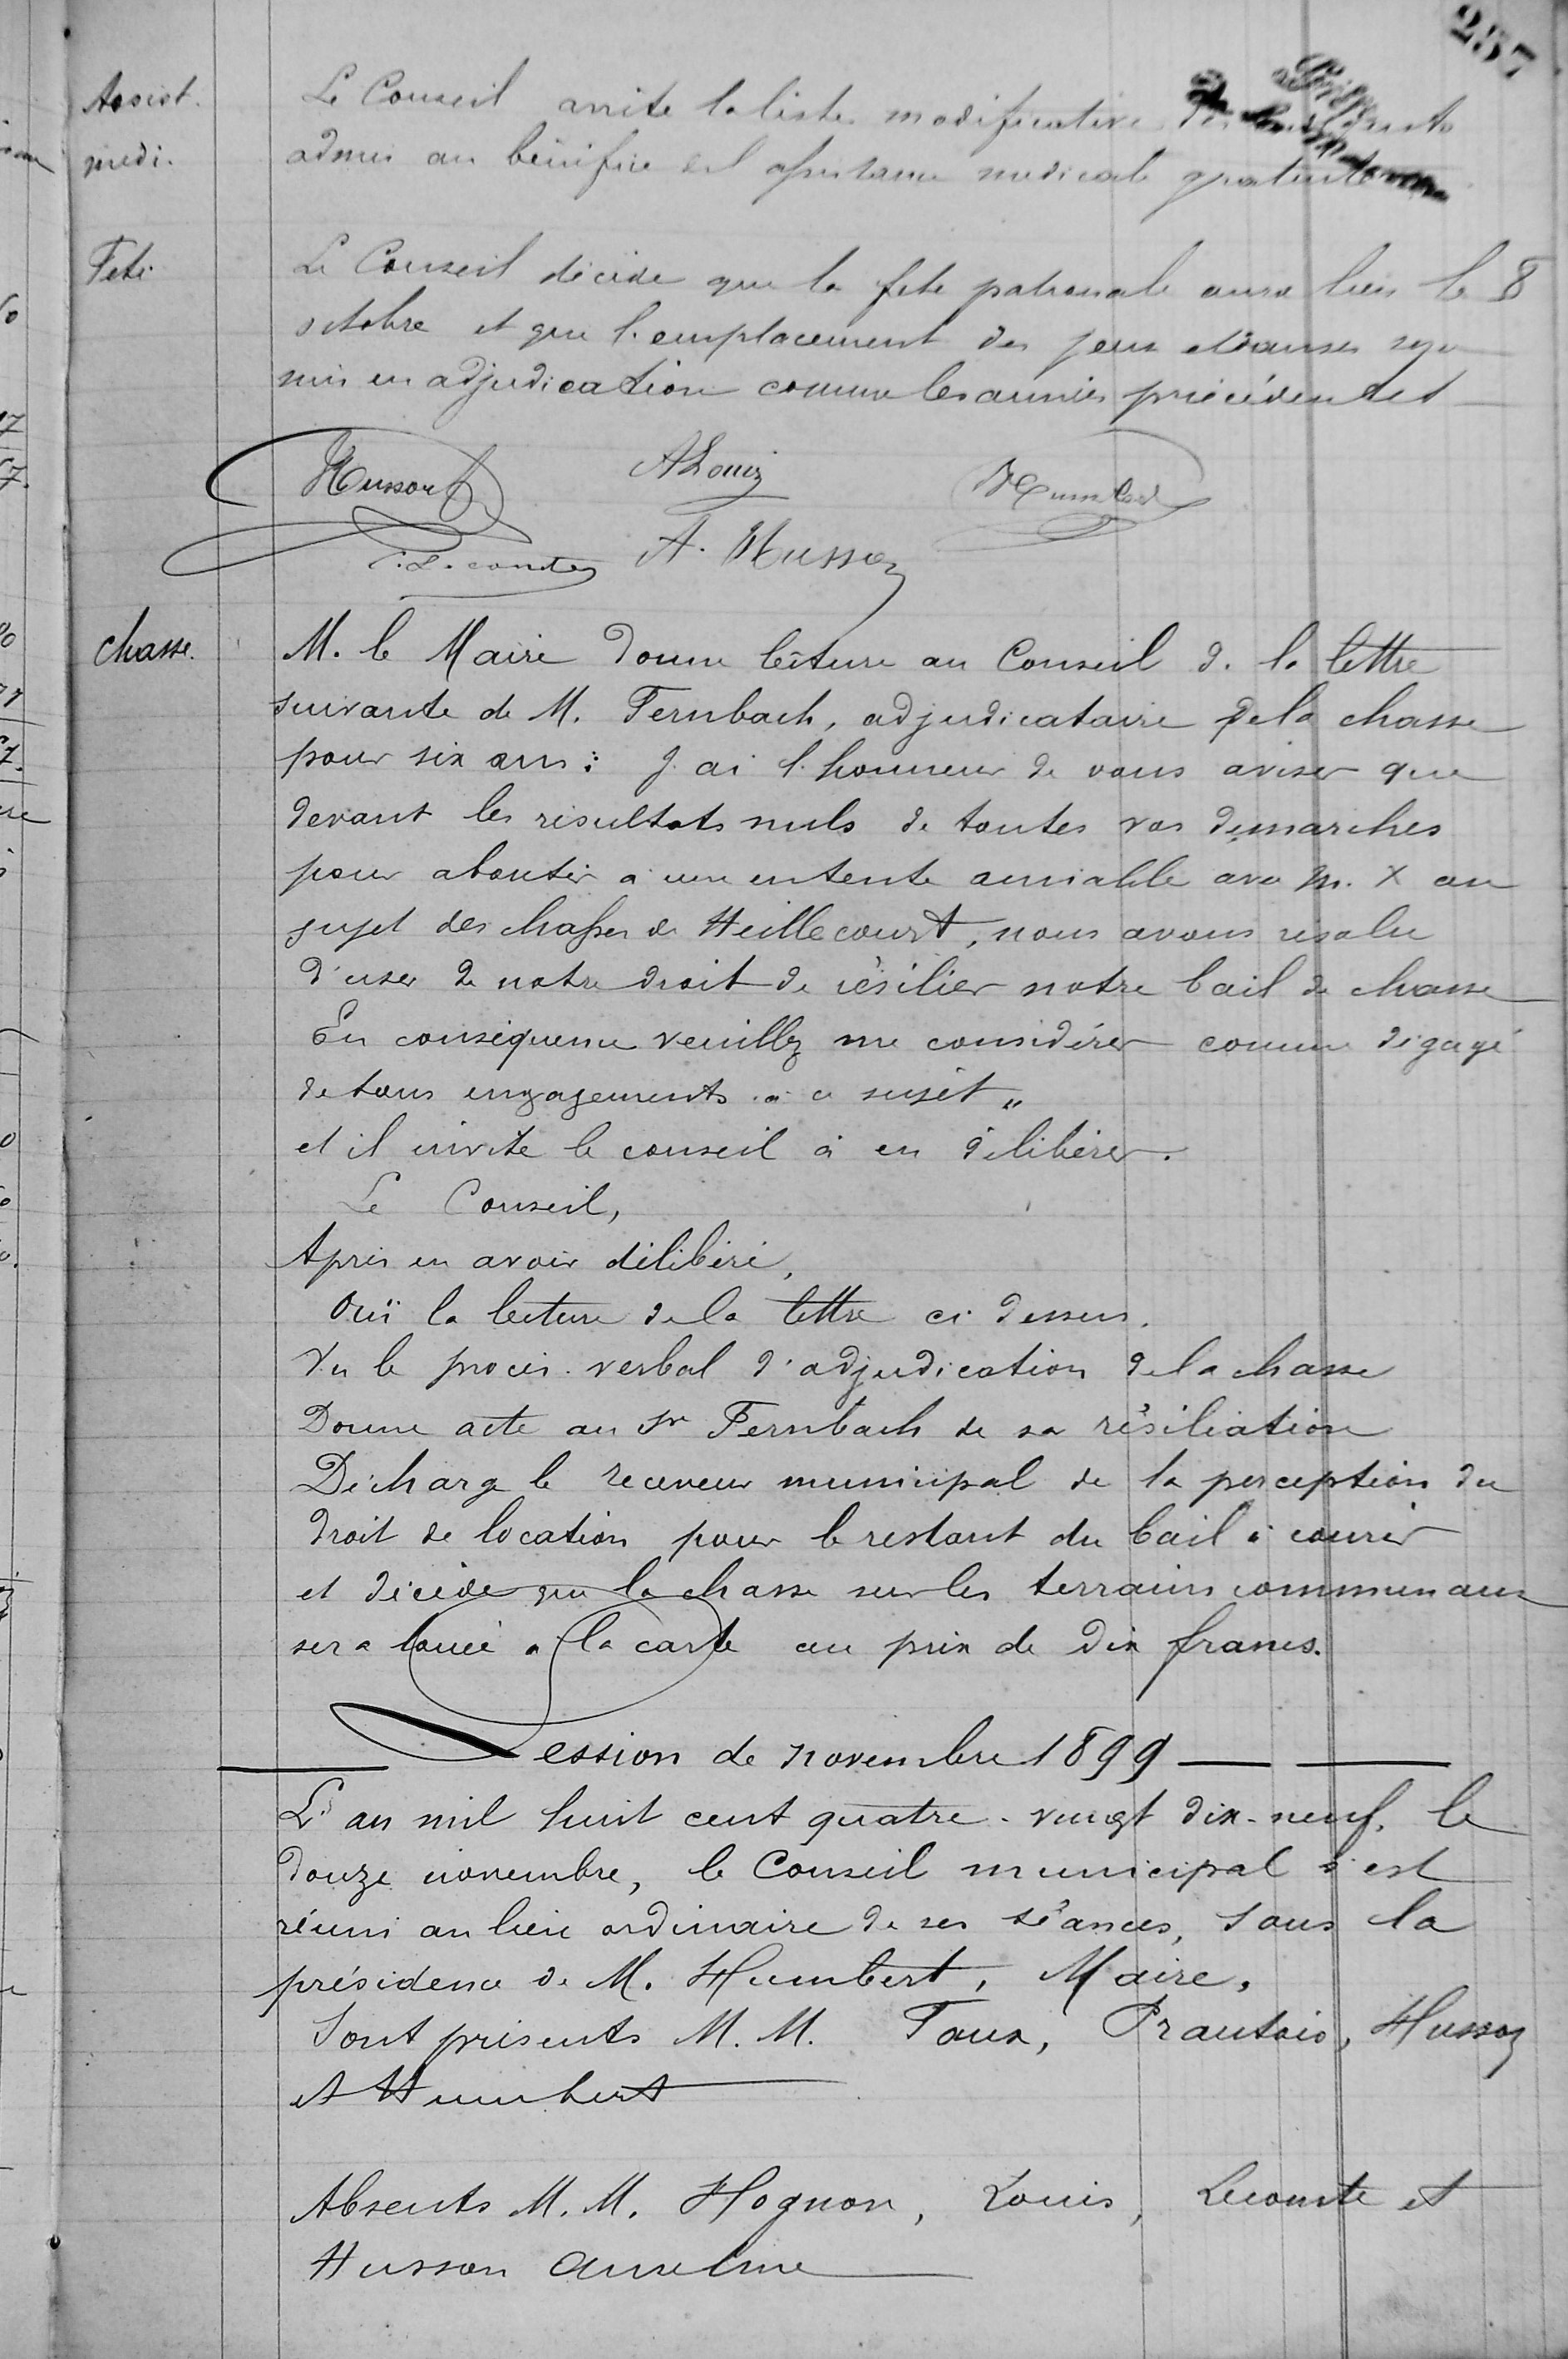 257
Assist. Le Conseil arrête la liste modificative des
médi. admis au bénéfice de l'assistance médicale gratuite
Fête Le Conseil décide que la fête patronale aura lieu le 8
octobre et que l'emplacement des jeux et danses sera
mis en adjudication comme les années précédentes
Husson ALouis Humbert
Lecomte A. Husson
chasse. M. le Maire donne lecture au Conseil de la lettre
suivante de M. Fernbach, adjudicataire de la chasse
pour six ans : J'ai l'honneur de vous aviser que
devant les résultats nuls de toutes vos démarches
pour aboutir à une entente amiable avec M. X au
sujet des chasses de Heillecourt, nous avons résolu
d'user de notre droit de résilier notre bail de chasse
En conséquence veuillez me considérer comme dégagé
de tous engagements à ce sujet "
et il invite le conseil à en délibérer.
Le Conseil,
Après en avoir délibéré,
Ouï la lecture de la lettre ci dessus.
Vu le procès-verbal d'adjudication de la chasse
Donne acte au Sr Fernbach de sa résiliation
Décharge le receveur municipal de la perception du
droit de location pour le restant du bail à courir
et décide que la chasse sur les terrains communaux
sera louée à la carte au prix de dix francs.
Session de novembre 1899
L'an mil huit cent quatre-vingt dix-neuf, le
douze novembre, le Conseil municipal s'est
réuni au lieu ordinaire de ses séances, sous la
présidence de M. Humbert, Maire,
Sont présents M. M. Toux, Frantois, Husson
et Humbert
Absents M. M. Hognon, Louis, Lecomte et
Husson Anselme